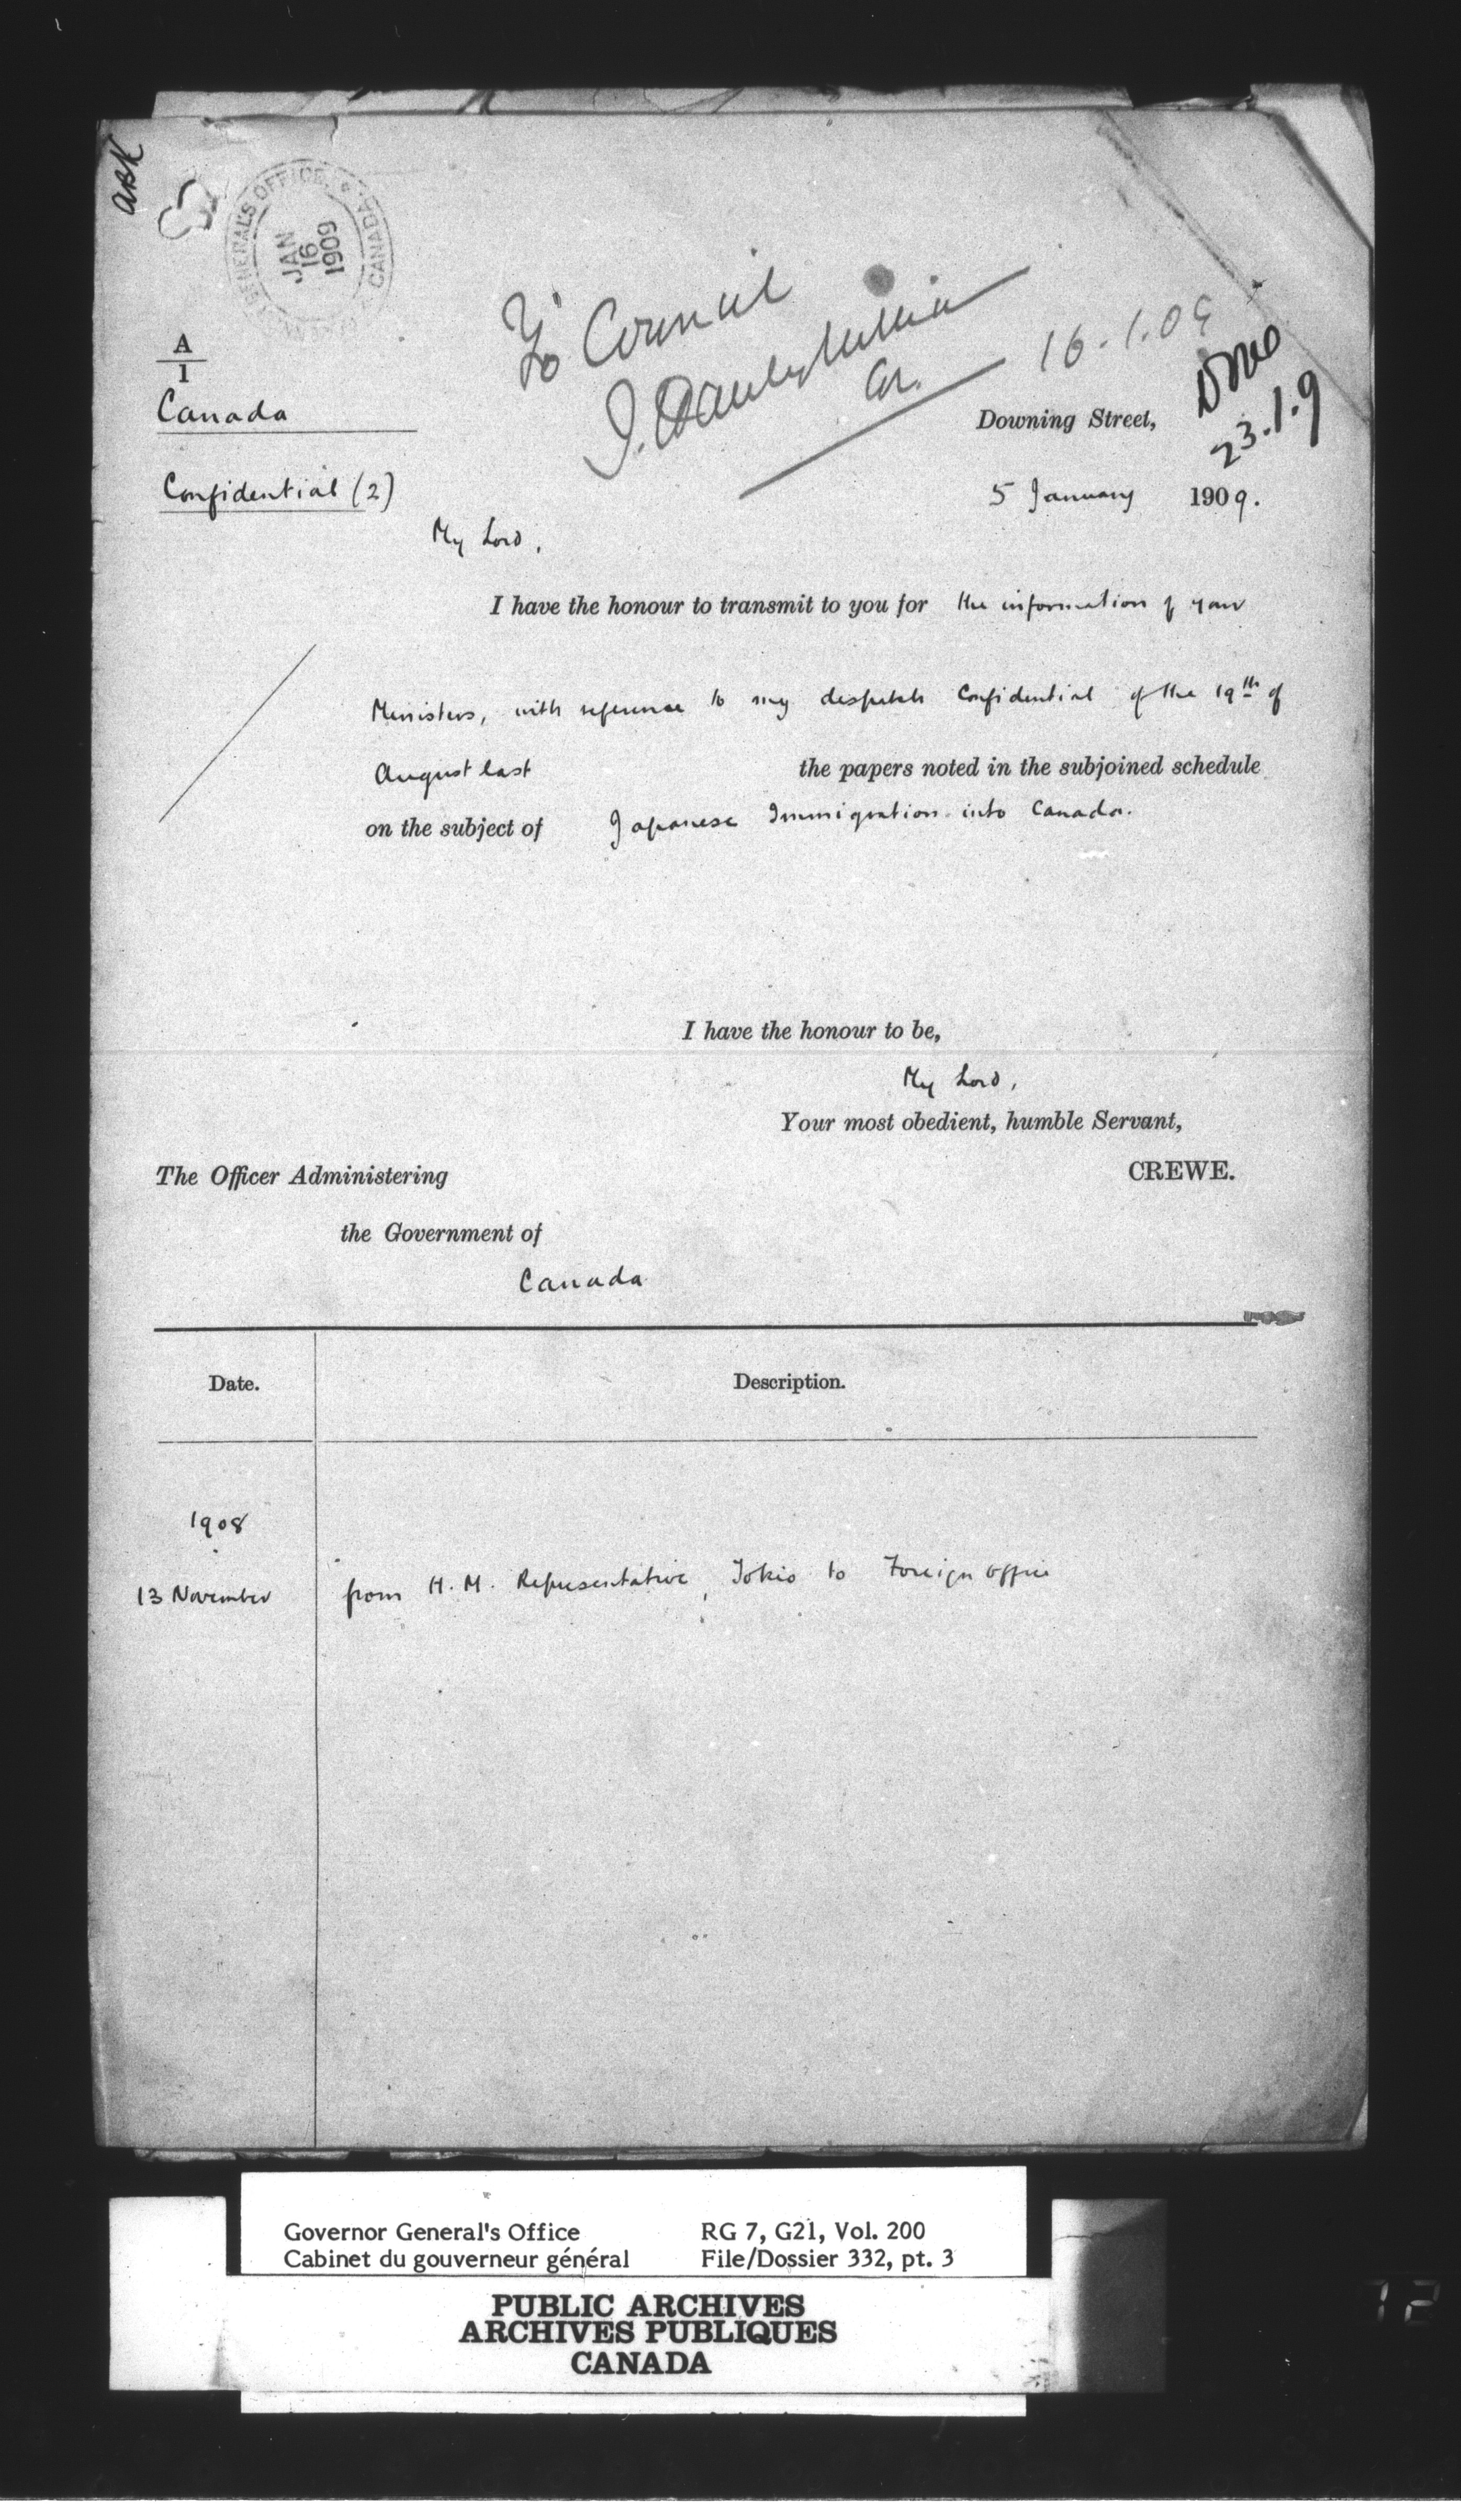 ask
GENERAL'S OFFICE
CANADA
JAN
16
1909
To Council
16.1.09
A
1
Canada
Downing Street,
23.1.9
Confidential (2)
5 January 1909.
My Lord,
I have the honour to transmit to you for the information of your
Ministers, with reference to my despatch Confidential of the 19th of
August last the papers noted in the subjoined schedule
on the subject of Japanese Immigration into Canada.
I have the honour to be,
My Lord,
Your most obedient, humble Servant,
CREWE.
The Officer Administering
the Government of
Canada
Date. Description.
1908
13 November from H.M. Representative, Tokio to Foreign Office
Governor General's Office RG 7, G21, Vol. 200
Cabinet du gouverneur général File/Dossier 332, pt. 3
PUBLIC ARCHIVES
ARCHIVES PUBLIQUES
CANADA
12